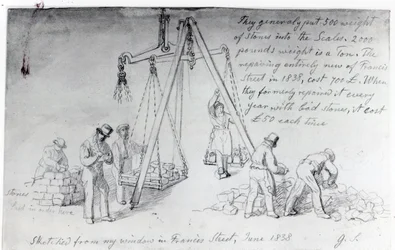 They generaly put 300 weight
of Stones into the Scales. 2000
pounds weight is a Ton. The
repairing entirely new of Francis
Street in 1838, cost 700£. When
they formerly repaired it every
year with bad stones, it cost
£50 each time
Stones
Sketched from my window in Francis Street, June 1838
G. S